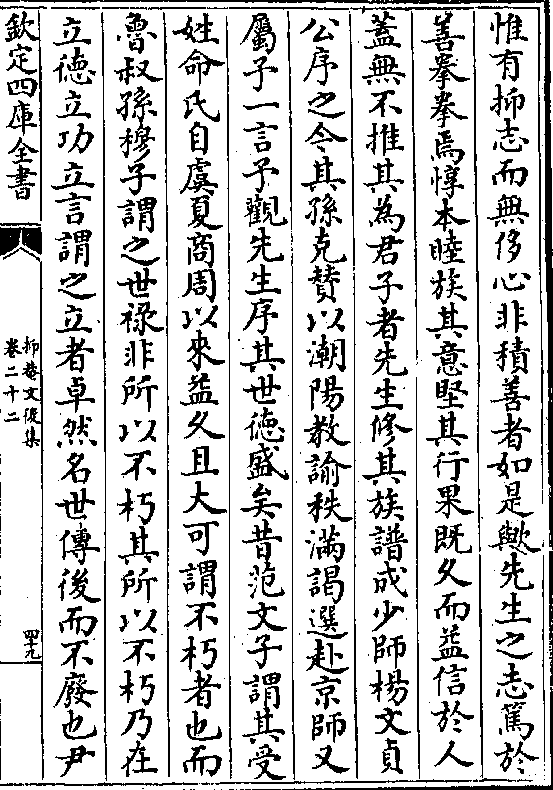 惟有抑志而無侈心非積善者如是歟先生之志篤於
善拳拳焉惇本睦族其意堅其行果既久而益信於人
蓋無不推其為君子者先生修其族譜成少師楊文貞
公序之今其孫克贊以潮陽教諭秩滿謁選赴京師又
屬予一言予觀先生序其世德盛矣昔范文子謂其受
姓命氏自虞夏商周以來益久且大可謂不朽者也而
魯叔孫穆子謂之世祿非所以不朽其所以不朽乃在
立德立功立言謂之立者卓然名世傳後而不廢也尹
欽定四庫全書
抑菴文後集
卷二十二
四十九